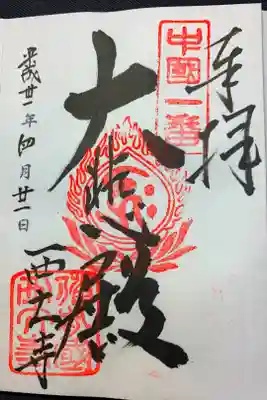 奉拝
中國一番
大悲殿
平成廿一年四月廿一日
西大寺